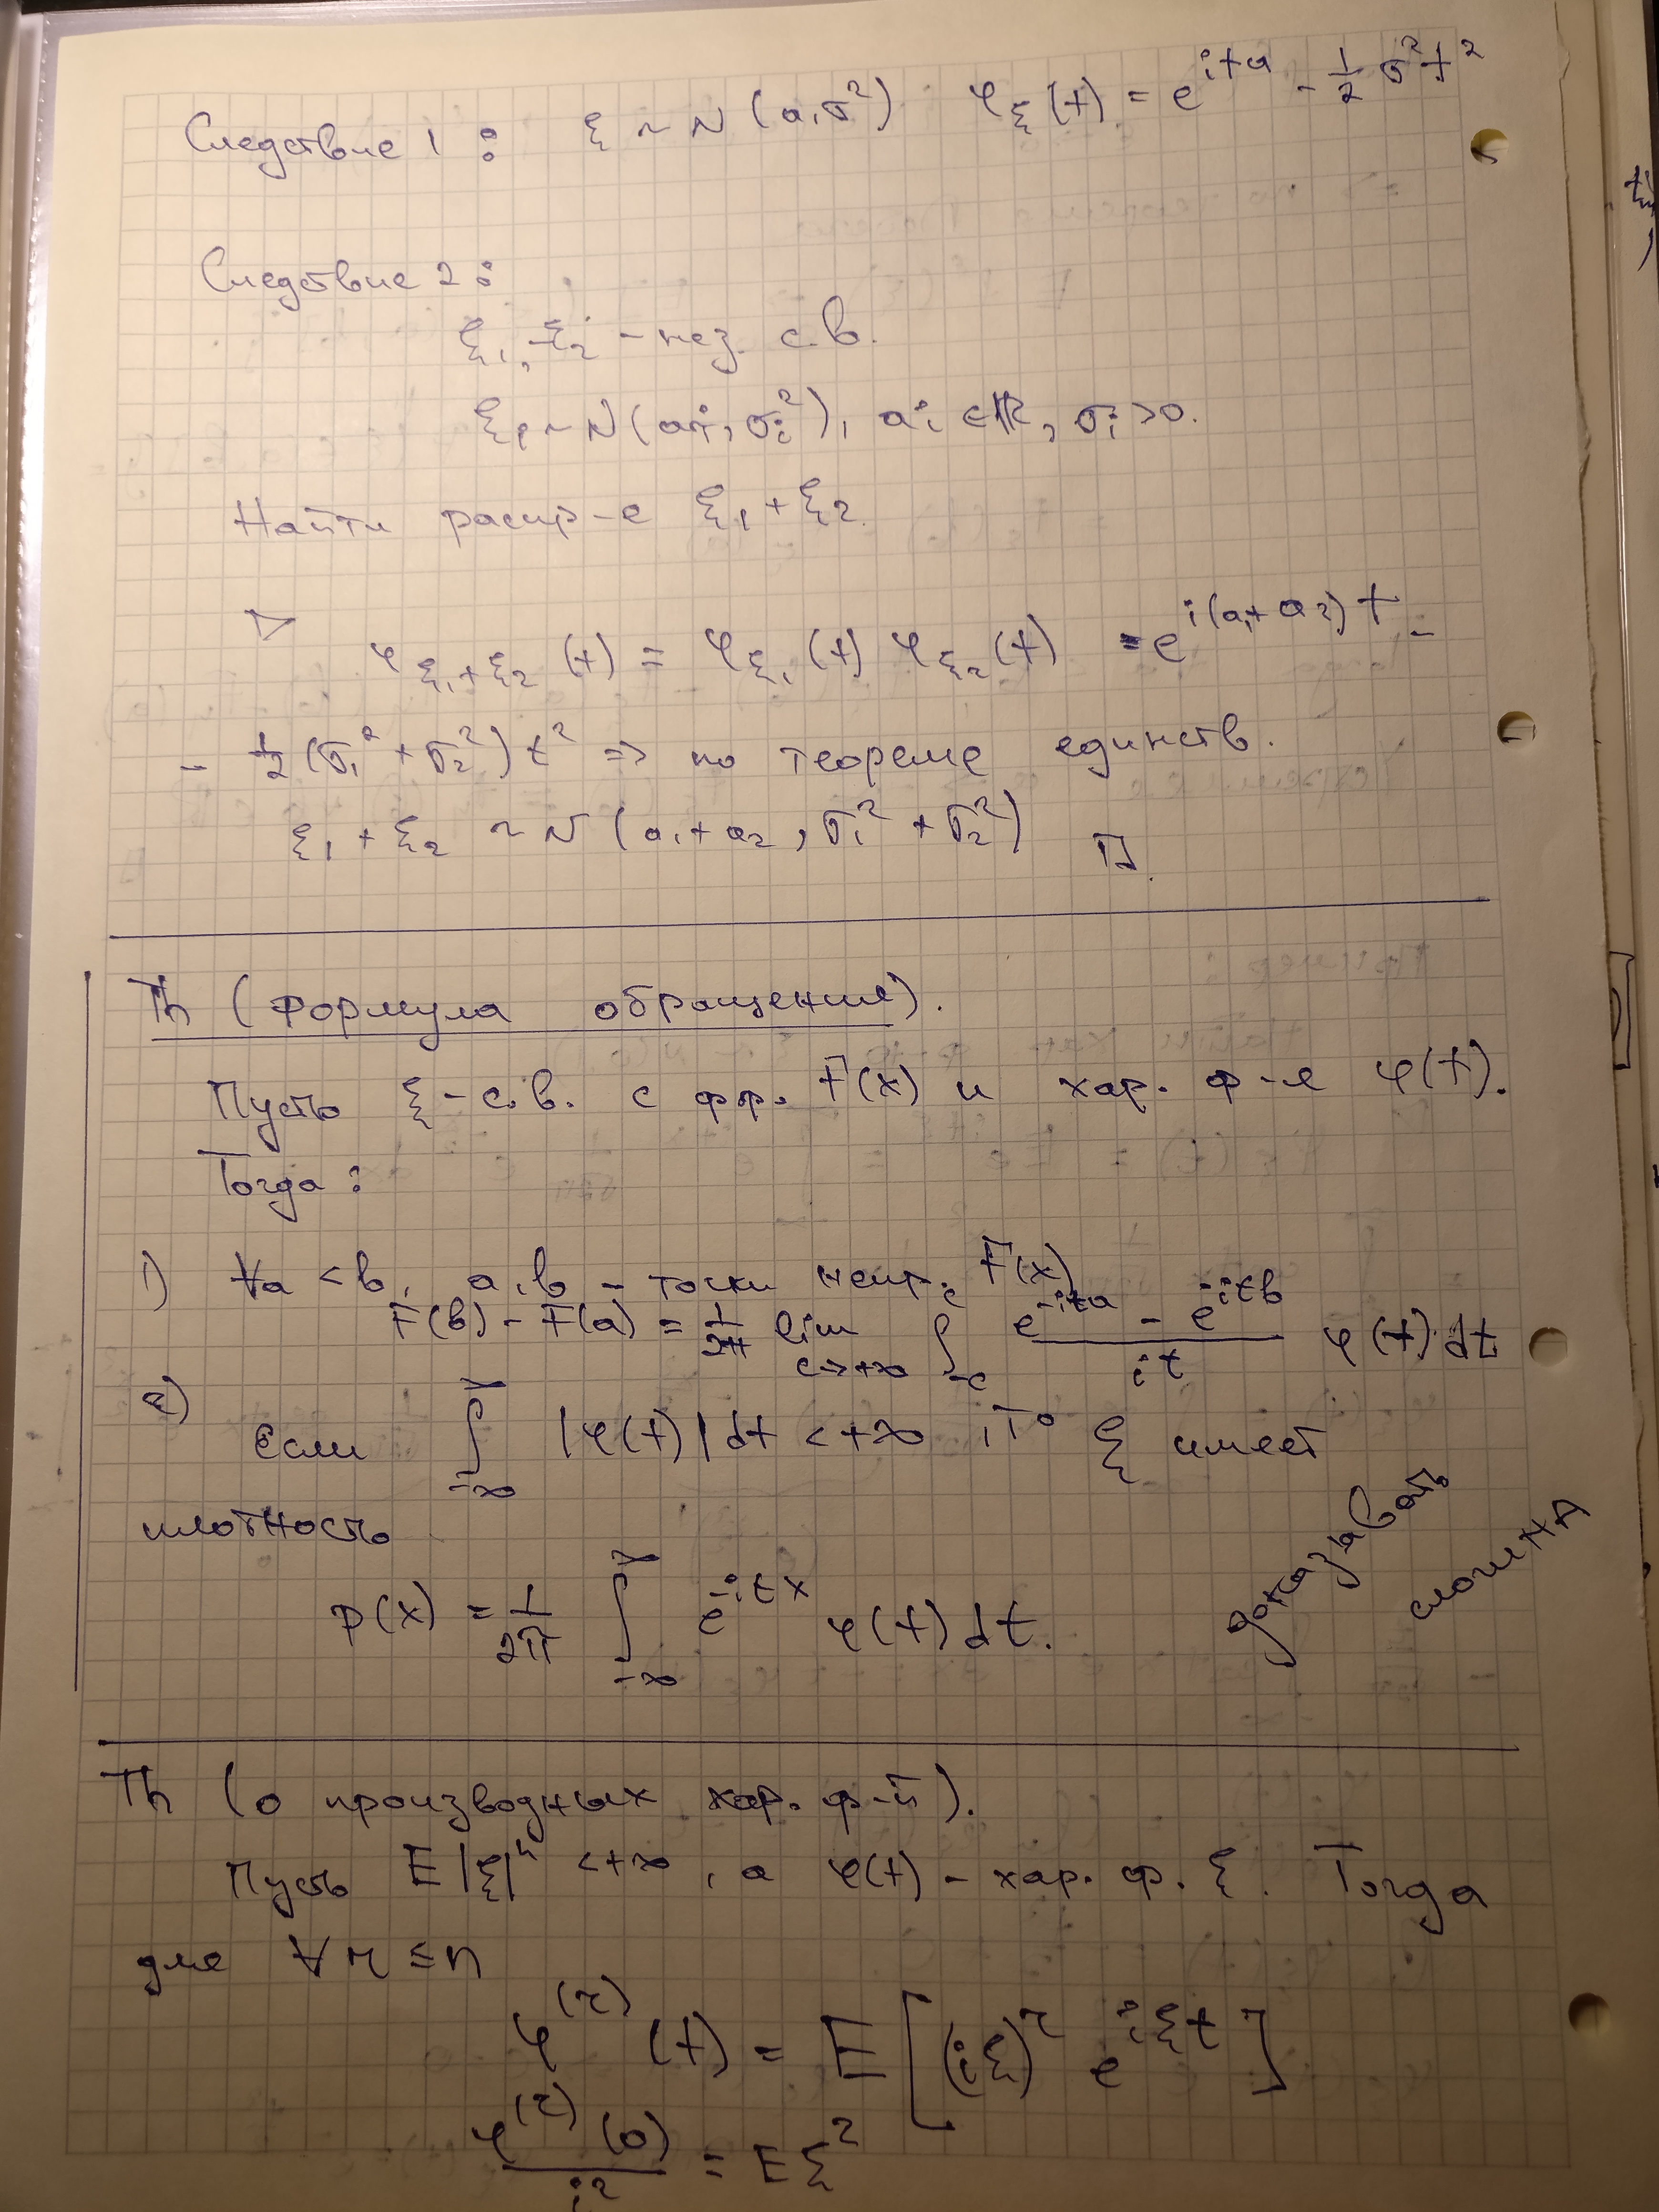 Следствие 1 : ξ ~ N (a, σ²) φ_ξ(t) = e^{ita - ½σ²t²}
Следствие 2 :
ξ₁, ξ₂ - нез. с.в.
ξᵢ ~ N(aᵢ, σᵢ²), aᵢ ∈ ℝ, σᵢ > 0.
Найти распр-е ξ₁ + ξ₂.
▷ φ_{ξ₁+ξ₂}(t) = φ_{ξ₁}(t) φ_{ξ₂}(t) = e^{i(a₁+a₂)t -
- ½(σ₁² + σ₂²)t²} => по теореме единств.
ξ₁ + ξ₂ ~ N (a₁ + a₂, σ₁² + σ₂²) □.
Th (Формула обращения).
Пусть ξ - с.в. с ф.р. F(x) и хар. ф-я φ(t).
Тогда :
1) ∀a < b, a, b - точки непр. F(x)
F(b) - F(a) = 1/2π lim_{c→+∞} ∫_{-c}^{c} (e^{-ita} - e^{-itb})/(it) φ(t) dt
2)
Если ∫_{-∞}^{∞} |φ(t)| dt < +∞, то ξ имеет
плотность
p(x) = 1/2π ∫_{-∞}^{∞} e^{-itx} φ(t) dt.
доказывать
сложна
Th (о производных хар. ф-й).
Пусть E|ξ|ⁿ < +∞, а φ(t) - хар. ф. ξ. Тогда
для ∀ r ≤ n
φ^{(r)}(t) = E[(iξ)^r e^{iξt}]
φ^{(r)}(0)/i^r = Eξ^r